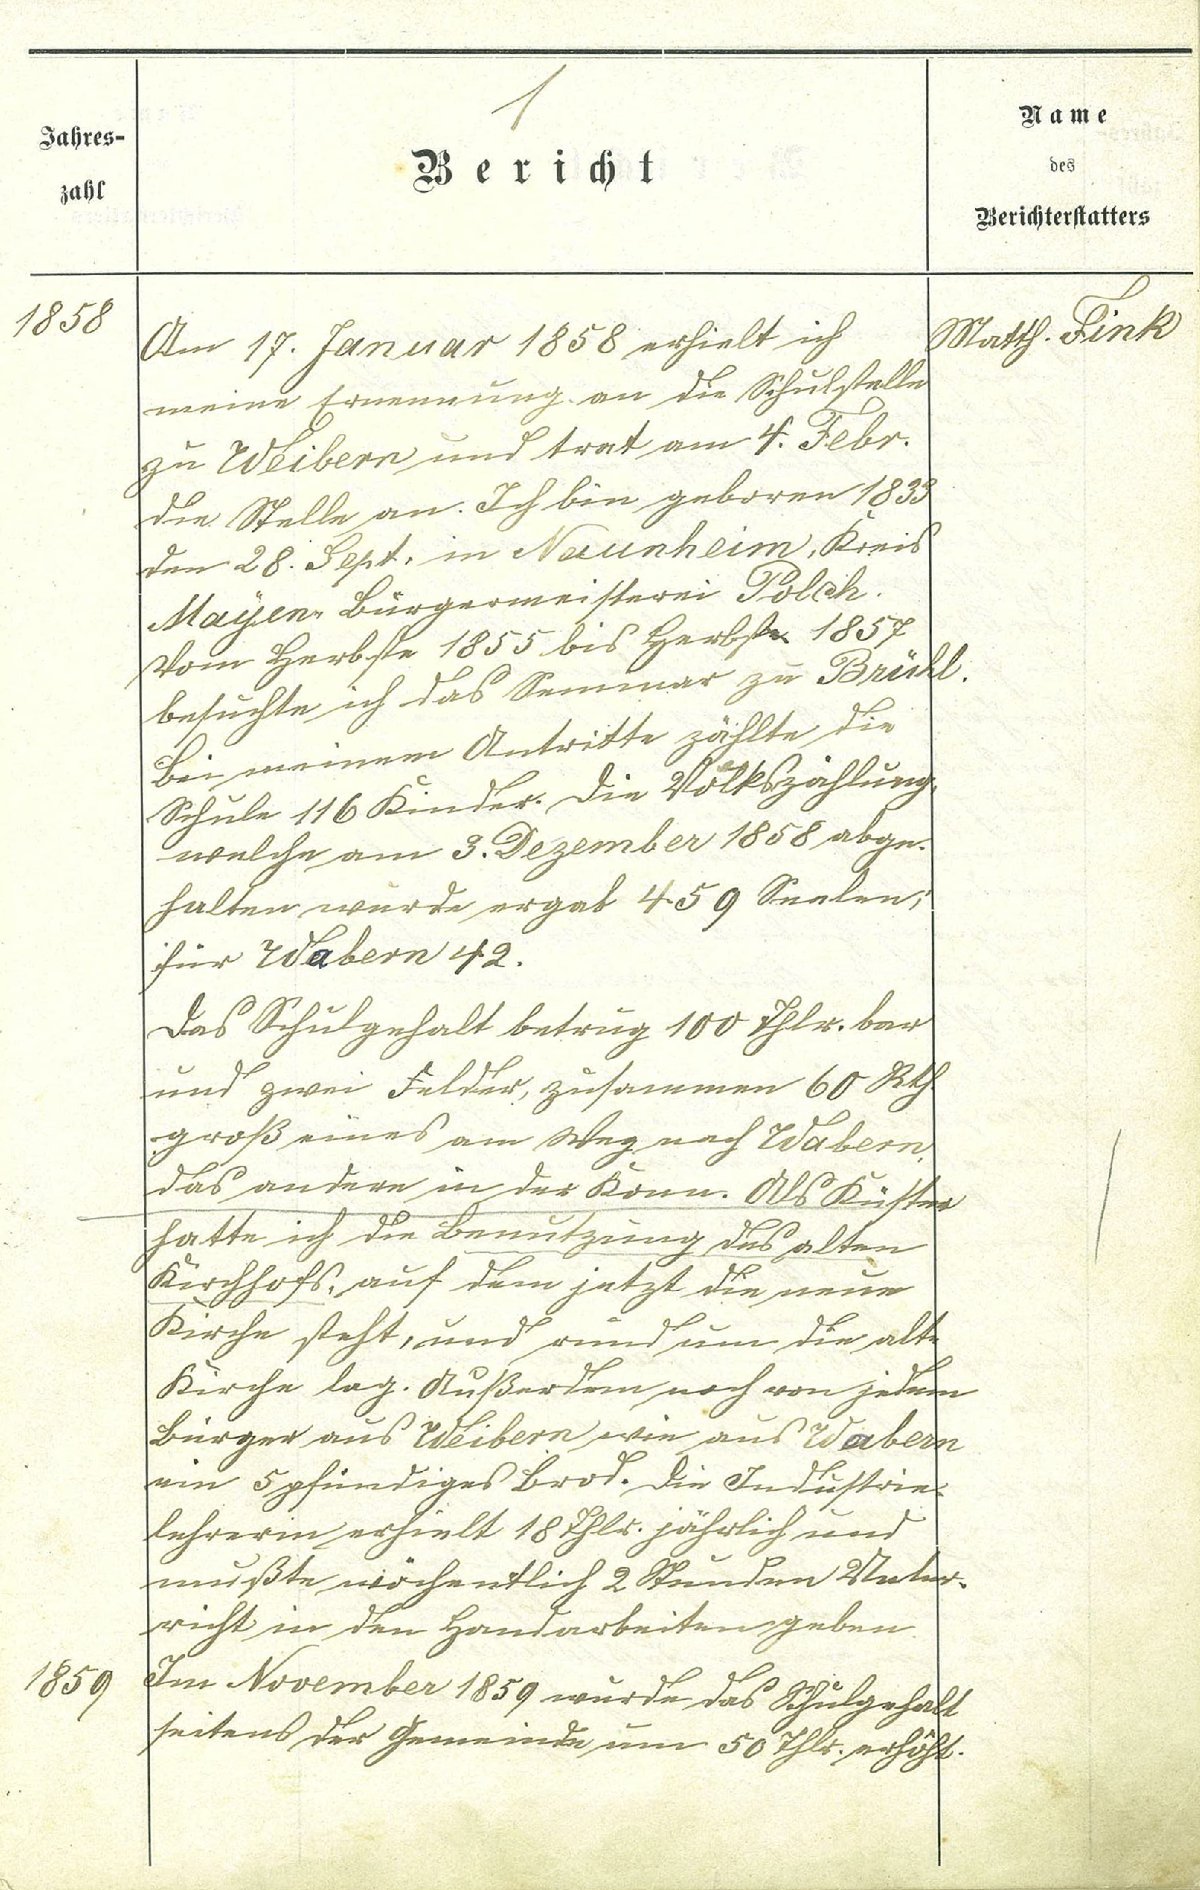 1
Jahres-
zahl
Bericht
Name
des
Berichterstatters
1858
Matth. Fink
Am 17. Januar 1858 erhielt ich
meine Ernennung an die Schulstelle
zu Weibern und trat am 4. Febr.
die Stelle an. Ich bin geboren 1833
den 28. Sept. in Naunheim, Kreis
Mayen, Bürgermeisterei Polch.
Vom Herbste 1855 bis Herbste 1857
besuchte ich das Seminar zu Brühl.
Bei meinem Antritte zählte die
Schule 116 Kinder. Die Volkszählung,
welche am 3. Dezember 1858 abge-
halten wurde ergab 459 Seelen;
für Wabern 42.
Das Schulgehalt betrug 100 Thlr. bar
und zwei Felder, zusammen 60 Rth
groß eines am Weg nach Wabern,
das andere in der Konn. Als Küster
hatte ich die Benutzung des alten
Kirchhofs, auf dem jetzt die neue
Kirche steht, und rund um die alte
Kirche lag. Außerdem noch von jedem
Bürger aus Weibern wie aus Wabern
ein 5 pfündiges Brod. Die Industrie-
lehrerin erhielt 18 Thlr. jährlich und
mußte wöchentlich 2 Stunden Unter-
richt in den Handarbeiten geben.
1859
Im November 1859 wurde das Schulgehalt
seitens der Gemeinde um 50 Thlr. erhöht.